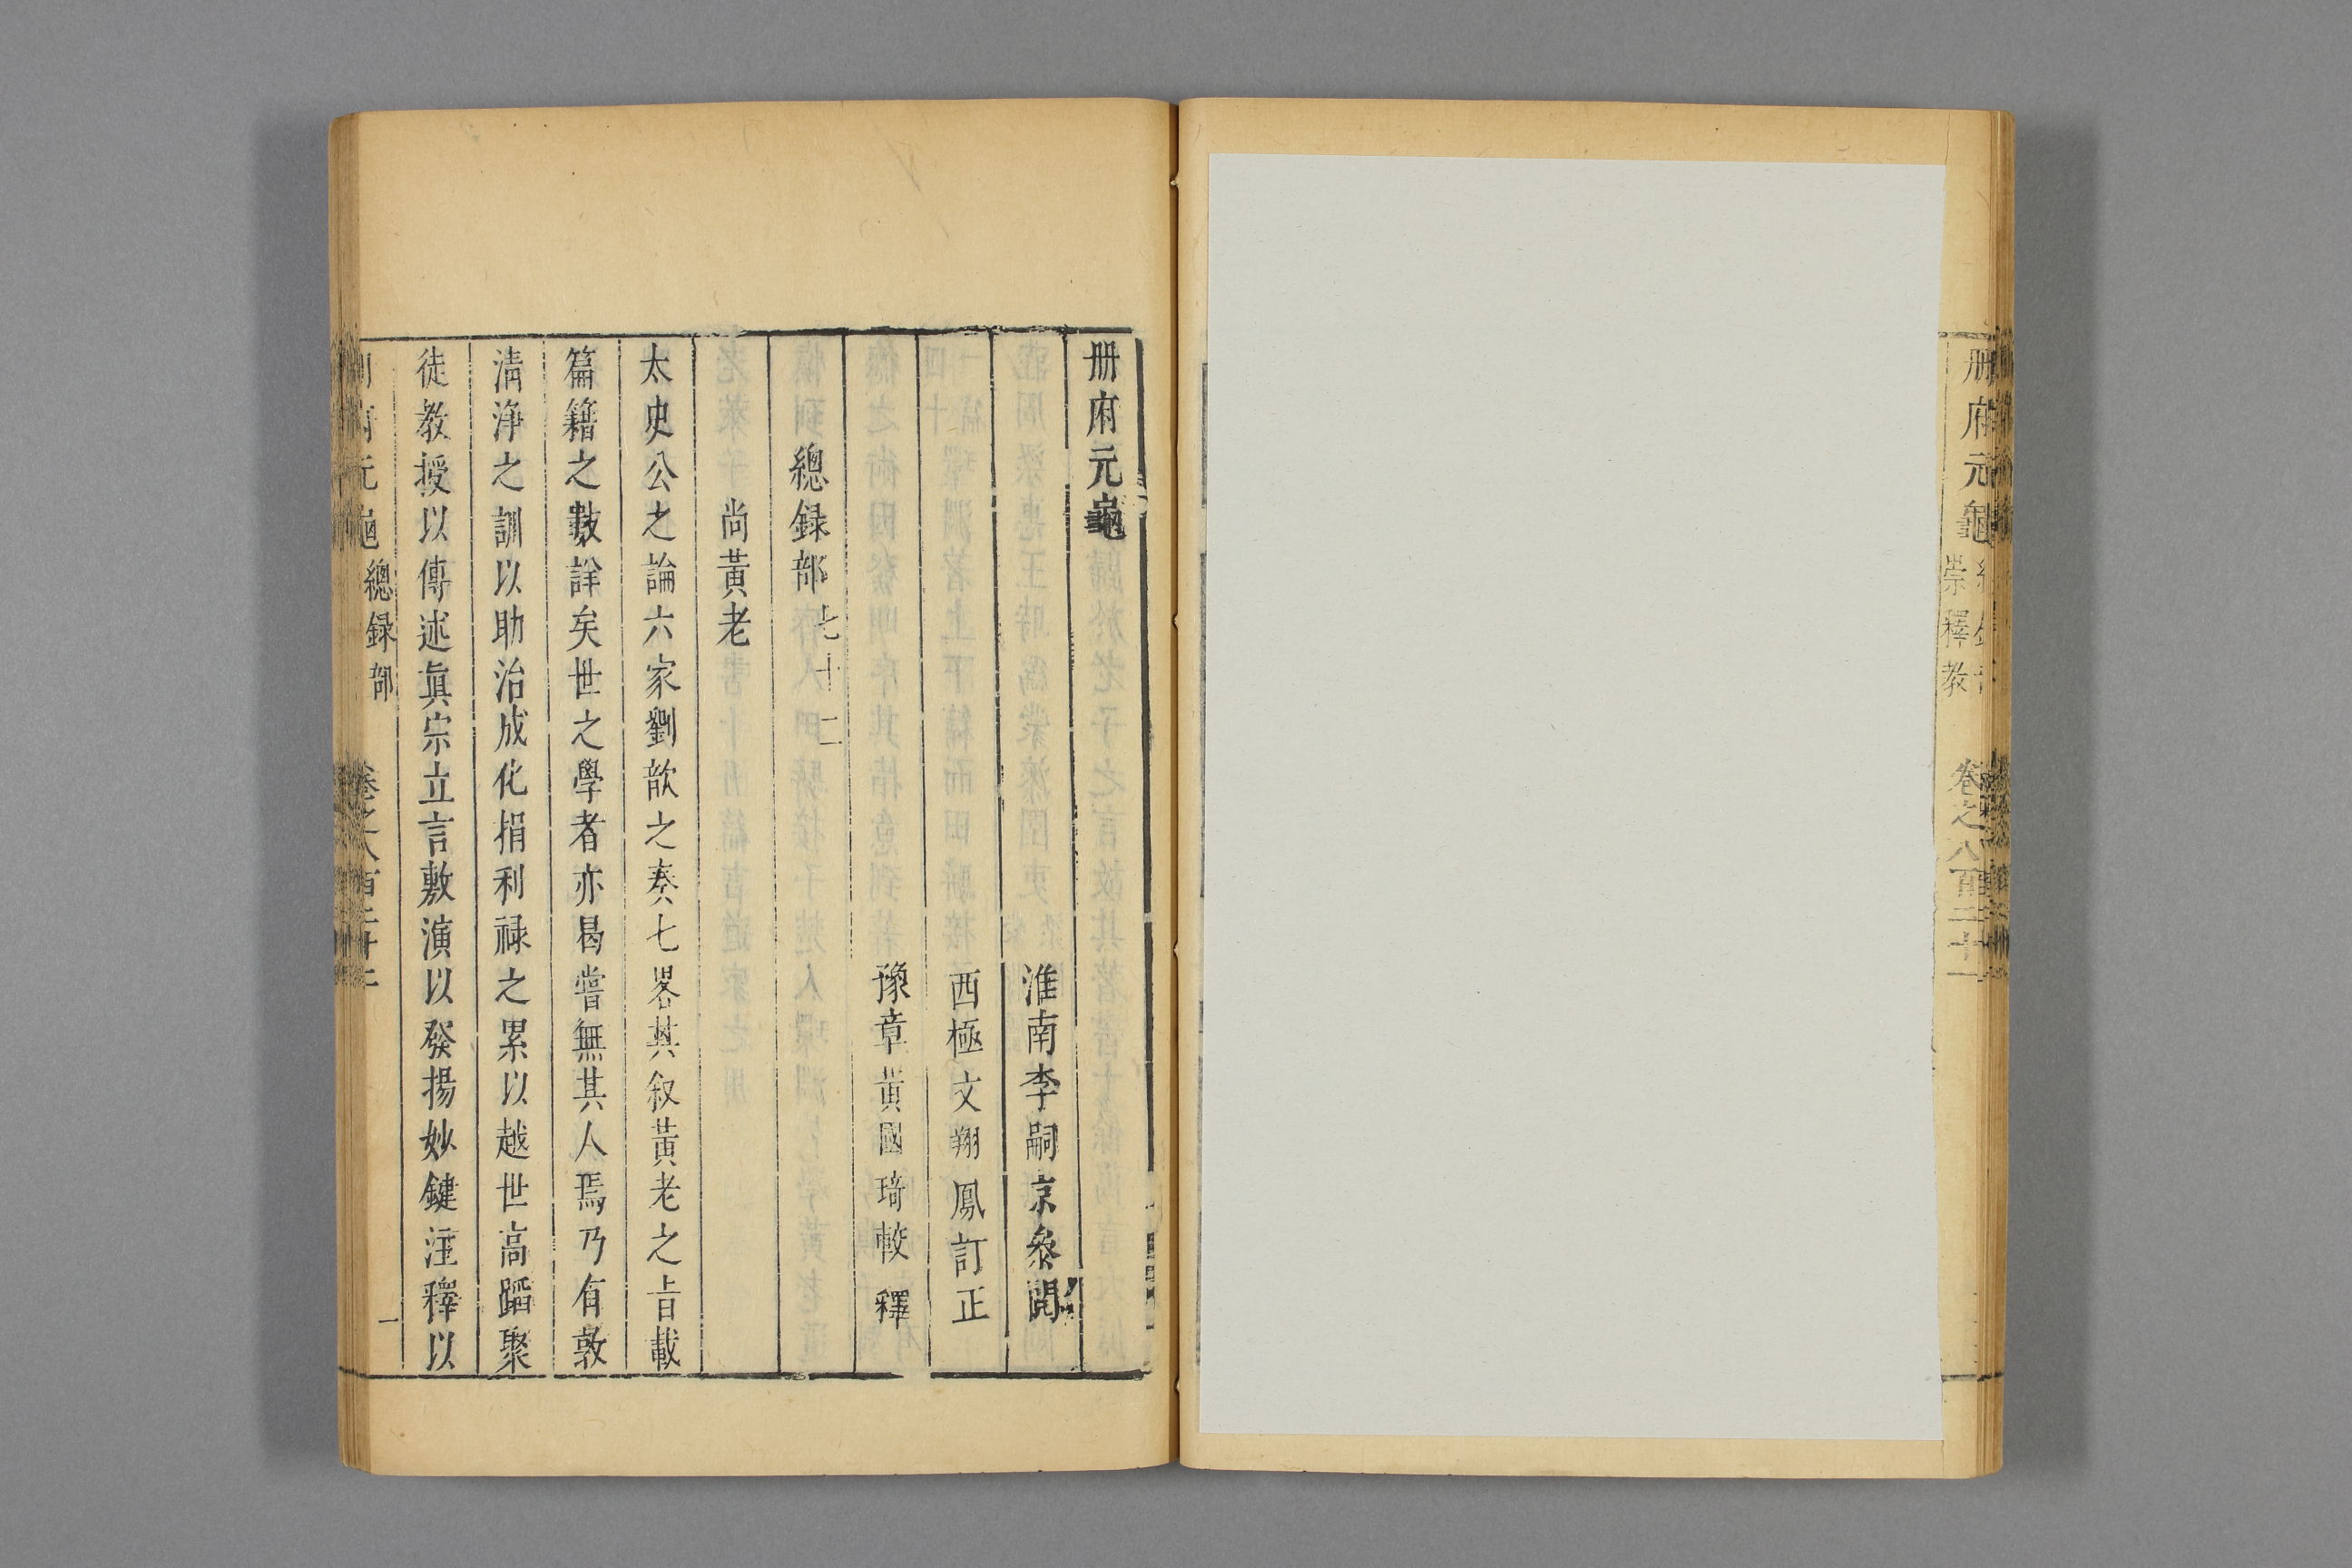 册府元龜
崇釋教
卷之八百二十一
册府元龜
淮南李嗣京叅閱
西極文翔鳳訂正
豫章黃國琦較釋
總録部七十二
尚黃老
太史公之論六家劉歆之奏七畧其叙黃老之旨載
篇籍之數詳矣世之學者亦曷嘗無其人焉乃有敦
淸淨之訓以助治成化捐利祿之累以越世高蹈聚
徒教授以傳述眞宗立言敷演以發揚妙鍵注釋以
總録部
一